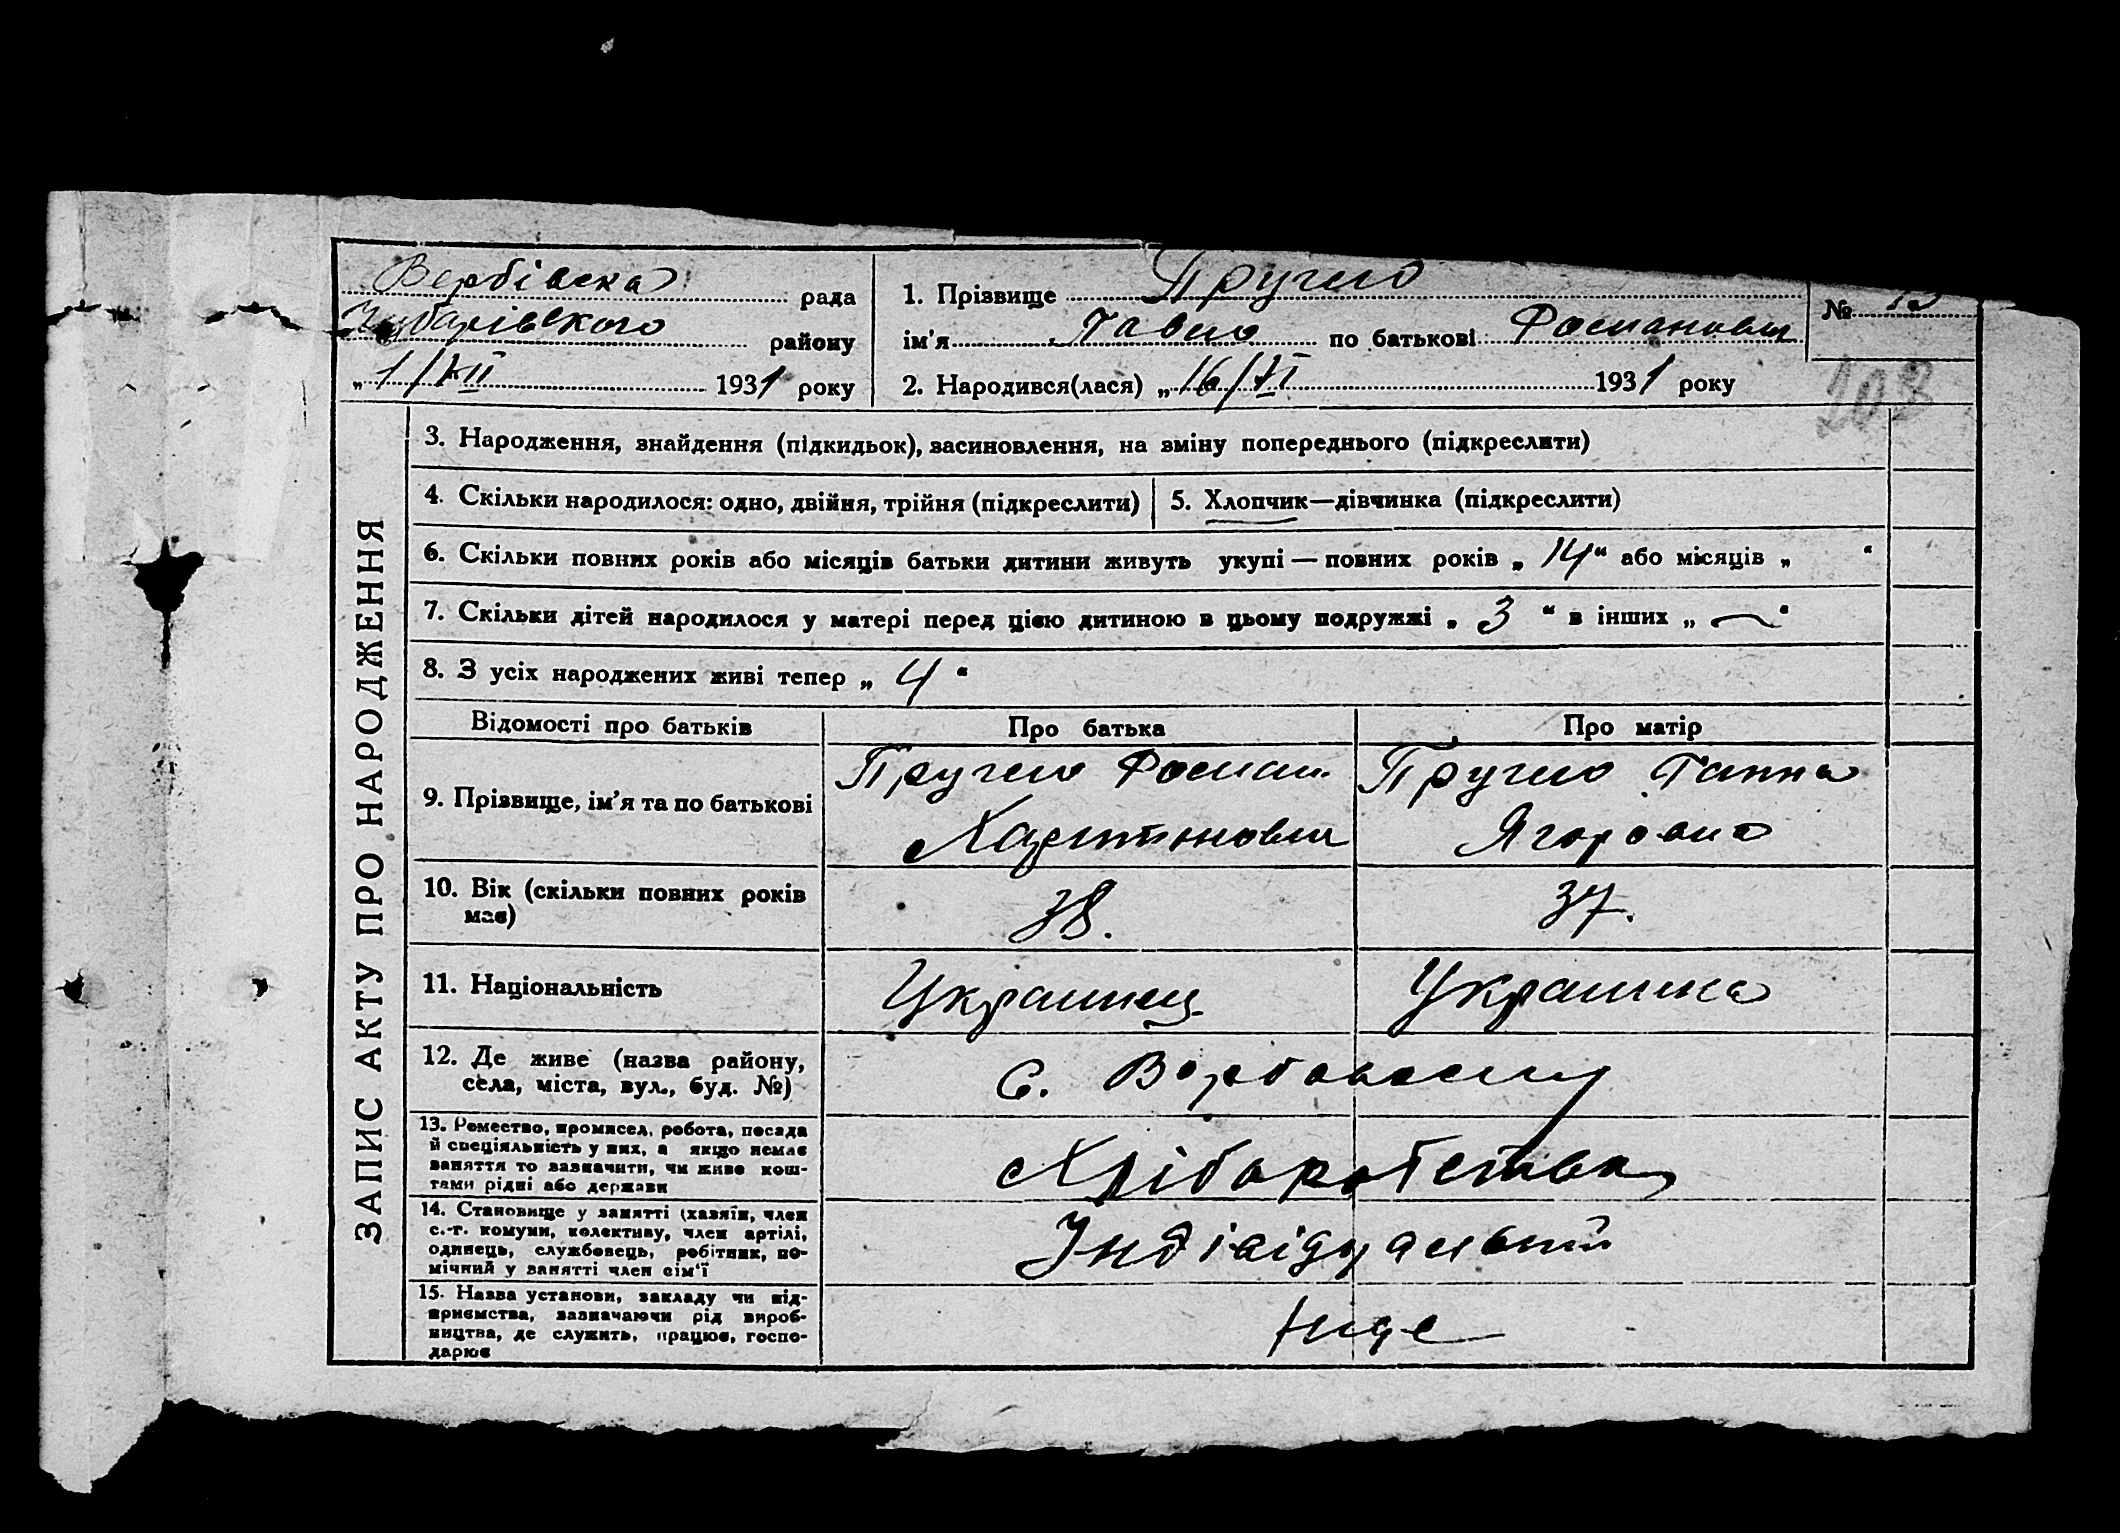 Вербівска рада
Чубарівского району
„ 1/XII 1931 року
1. Прізвище Пругло
ім'я Павло по батькові Романович
№ 13
2. Народився(лася) „ 16/XI 1931 року
203
ЗАПИС АКТУ ПРО НАРОДЖЕННЯ
3. Народження, знайдення (підкидьок), засиновлення, на зміну попереднього (підкреслити)
4. Скільки народилося: одно, двійня, трійня (підкреслити) 5. Хлопчик—дівчинка (підкреслити)
6. Скільки повних років або місяців батьки дитини живуть укупі — повних років „ 14 “ або місяців „ “
7. Скільки дітей народилося у матері перед цією дитиною в цьому подружжі „ 3 “ в інших „ — “
8. З усіх народжених живі тепер „ 4 “
Відомості про батьків Про батька Про матір
9. Прізвище, ім'я та по батькові
Пругло Роман
Харитонович
Пругло Ганна
Ягоровна
10. Вік (скільки повних років
має)
38.
37.
11. Національність Украинец Украинка
12. Де живе (назва району,
села, міста, вул., буд. №)
с.
13. Ремество, промисел, робота, посада
й спеціяльність у них, а якщо немає
заняття то зазначити, чи живе кош-
тами рідні або держави
Хліборобство
14. Становище у занятті (хазяїн, член
с.-г. комуни, колективу, член артілі,
одинець, службовець, робітник, по-
мічний у занятті член сім'ї
Індівідуальний
15. Назва установи, закладу чи під-
приємства, зазначаючи рід вироб-
ництва, де служить, працює, госпо-
дарює